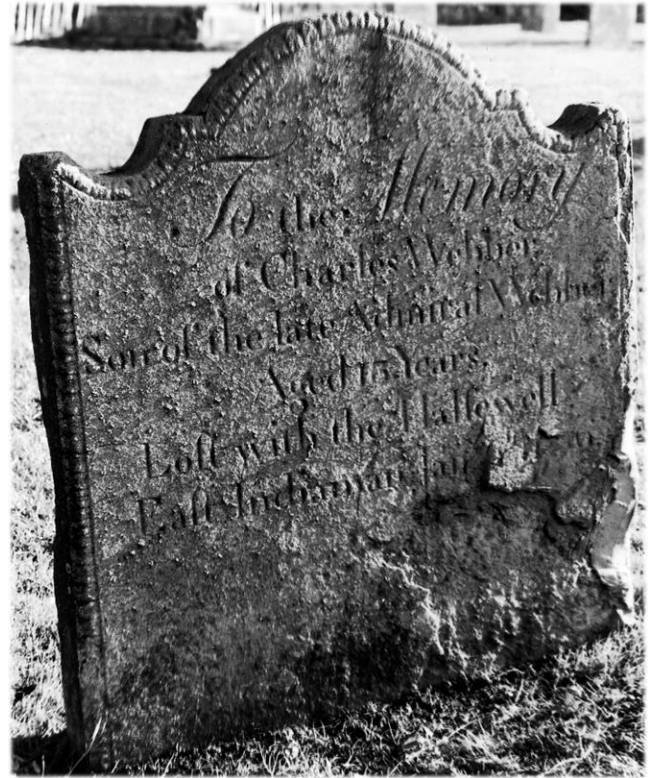 To the Memory
of Charles Webber
Son of the late Admiral Webber
Aged 15 Years,
Loſt with the Hallſewell
Eaſt Indiaman Jan